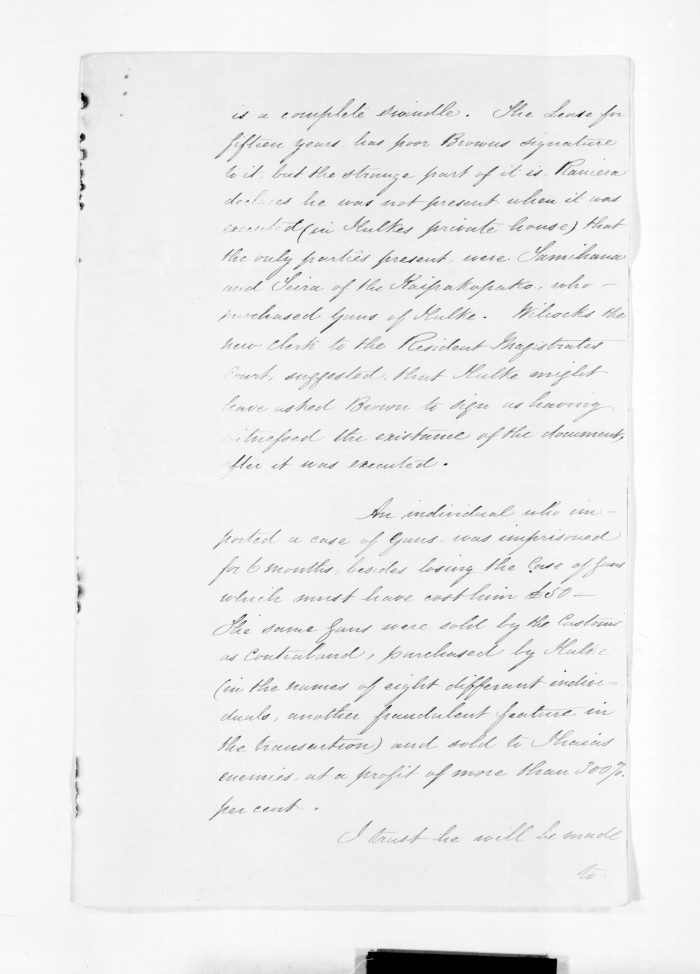 is a complete swindle. The Lease for
fifteen years, has poor Browns signature
to it, but the strange part of it is, Raniera
declares he was not present when it was
executed (in Hulkes private house) that
the only parties present, were Tamihana
and Teira of the Kaipakopako, who -
purchased Guns of Hulke. Wilcocks the
new clerk to the Resident Magistrates
Court, suggested, that Hulke might
have asked Brown to sign as having
witnessed the existance of the document,
after it was executed.
An individual who im-
ported a case of Guns, was imprisoned
for 6 months, besides losing the Case of Guns
which must have cost him £50 -
The same Guns were sold by the Customs
as Contraband, purchased by Hulke
(in the names of eight different indivi-
duals, another fraudulent feature in
the transaction) and sold to Ihaias
enemies, at a profit of more than 300%.
per cent.
I trust he will be made
to.